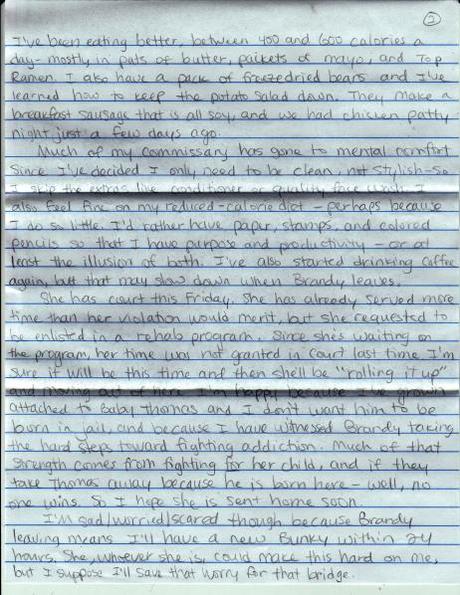 2
I've been eating better, between 400 and 600 calories a
day - mostly, in pats of butter, packets of mayo, and Top
Ramen. I also have a pack of freezedried bears and I've
learned how to keep the potato salad down. They make a
breakfast sausage that is all soy, and we had chicken patty
night just a few days ago.
Much of my commissary has gone to mental comfort
Since I've decided I only need to be clean, not stylish - so
I skip the extras like conditioner or quality face wash. I
also feel fine on my reduced-calorie diet - perhaps because
I do so little. I'd rather have paper, stamps, and colored
pencils so that I have purpose and productivity - or at
least the illusion of both. I've also started drinking coffee
again, but that may slow down when Brandy leaves.
She has court this Friday. She has already served more
time than her violation would merit, but she requested to
be enlisted in a rehab program. Since she's waiting on
the program, her time was not granted in court last time. I'm
sure it will be this time and then she'll be "rolling it up"
and moving out of here. I'm happy because I've grown
attached to Baby Thomas and I don't want him to be
born in jail, and because I have witnessed Brandy taking
the hard steps toward fighting addiction. Much of that
strength comes from fighting for her child, and if they
take Thomas away because he is born here - well, no
one wins. So I hope she is sent home soon.
I'm sad/worried/scared though because Brandy
leaving means I'll have a new Bunky within 24
hours. She, whoever she is, could make this hard on me,
but I suppose I'll save that worry for that bridge.